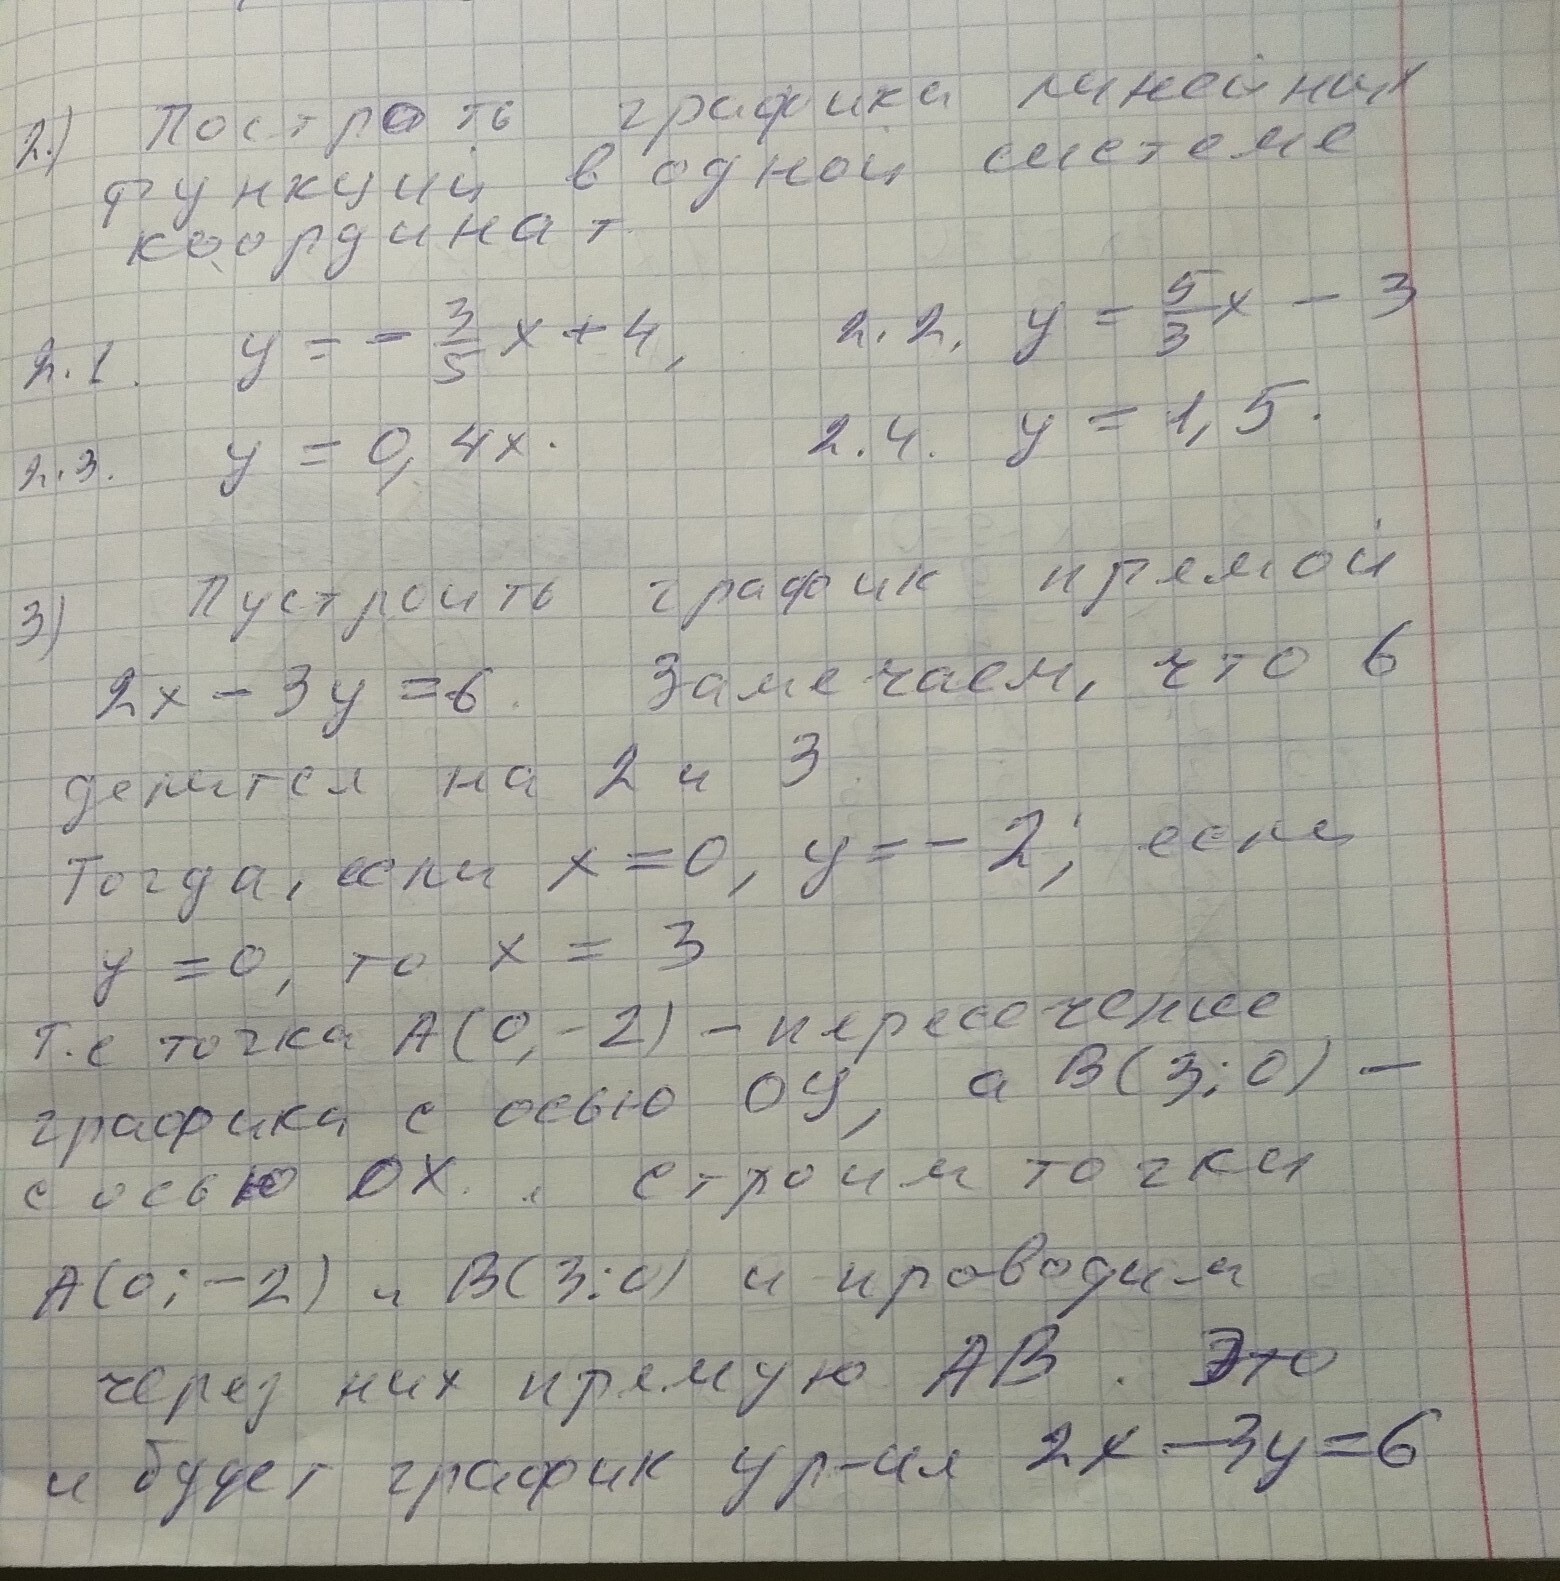 2.) Построть графика линейних
функций в одной системе
координат.
2.1. y = - 3/5 x + 4, 2.2. y = 5/3 x - 3
2.3. y = 0,4x. 2.4. y = 1,5.
3) Пустроить график прямой
2x - 3y = 6. Замечаем, что 6
делится на 2 и 3.
Тогда, если x = 0, y = - 2; если
y = 0, то x = 3
Т.е точка A(0, -2) - пересечение
графика с осью OY, а B(3; 0) -
с осью OX. строим точки
A(0; -2) и B(3; 0) и проводим
через них прямую AB. Это
и будет график ур-ия 2x - 3y = 6